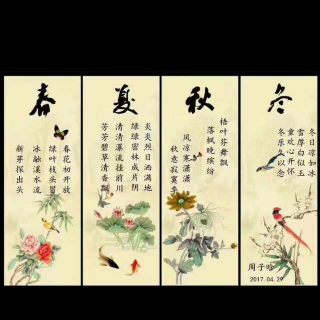 春
春花初开放
绿叶枝头冒
冰融溪水流
新芽探出头
夏
炎炎烈日洒满地
绿绿密林成片阴
清清瀑流挂前川
芳芳碧草清香飘
秋
梧叶芬舞飘
落枫晚缤纷
风凉寒潇潇
秋意寂寞季
冬
冬日凉如冰
雪厚白似玉
童欢心开怀
冬乐久以念
周子晗
2017.04.29